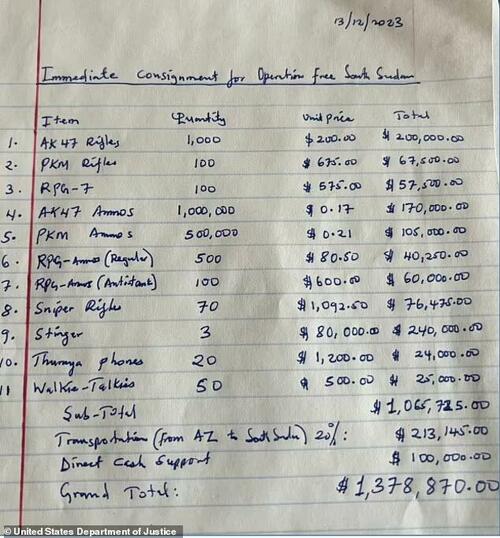 13/12/2023
Immediate Consignment for Operation Free South Sudan
Item Quantity Unit Price Total
1. AK47 Rifles 1,000 $200.00 $200,000.00
2. PKM Rifles 100 $675.00 $67,500.00
3. RPG-7 100 $575.00 $57,500.00
4. AK47 Ammos 1,000,000 $0.17 $170,000.00
5. PKM Ammos 500,000 $0.21 $105,000.00
6. RPG-Ammo (Regular) 500 $80.50 $40,250.00
7. RPG-Ammos (Antitank) 100 $600.00 $60,000.00
8. Sniper Rifles 70 $1,092.50 $76,475.00
9. Stinger 3 $80,000.00 $240,000.00
10. Thuraya phones 20 $1,200.00 $24,000.00
11 Walkie-Talkies 50 $500.00 $25,000.00
Sub-Total $1,065,725.00
Transportation (from AZ to South Sudan) 20%: $213,145.00
Direct Cash Support $100,000.00
Grand Total: $1,378,870.00
© United States Department of Justice